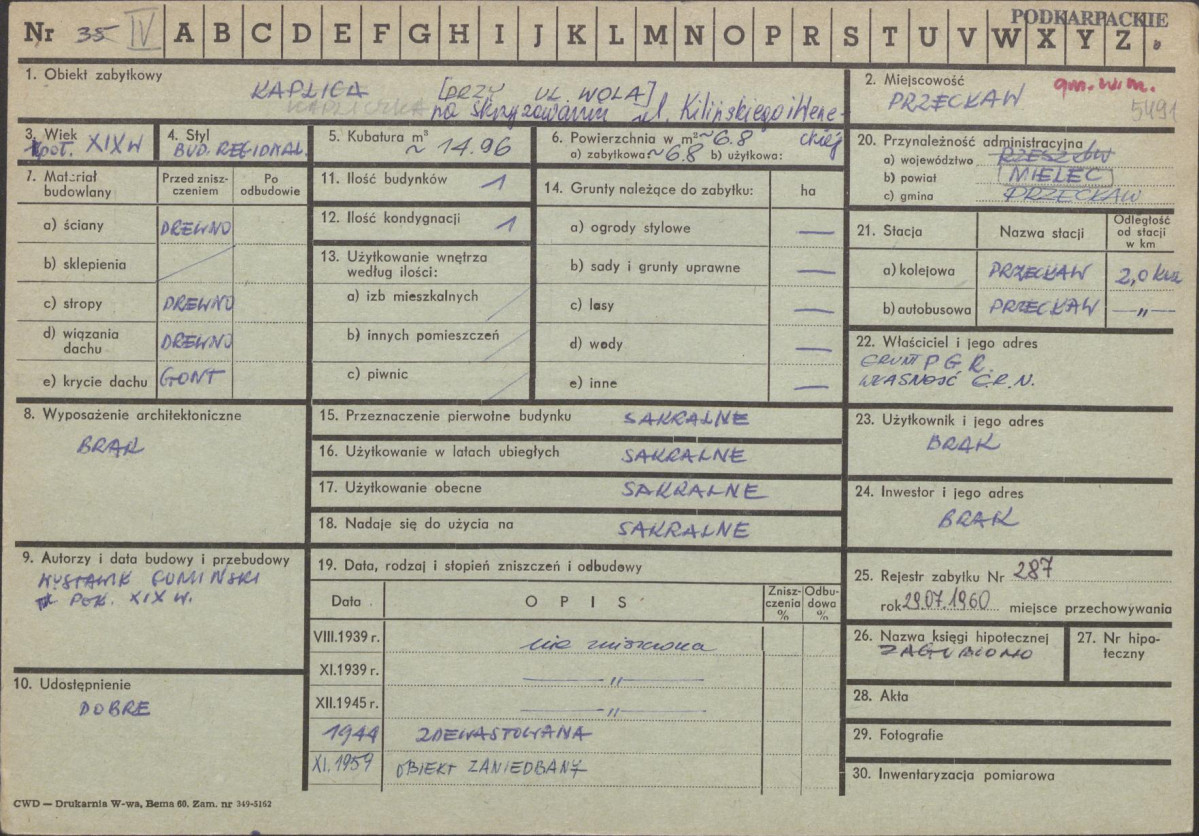 PODKARPACKIE
Nr 35 IV A B C D E F G H I J K L M N O P R S T U V W X Y Z
1. Obiekt zabytkowy
KAPLICA [PRZY UL. WOLA]
KAPLICZKA na skrzyżowaniu ul. Kilińskiego i Wene-
ckiej
2. Miejscowość
gm. w m.
PRZECŁAW
5491
3. Wiek
poł. XIX W
4. Styl
BUD. REGIONAL.
5. Kubatura m³
~ 14.96
6. Powierzchnia w m² ~ 6.8
a) zabytkowa ~ 6.8 b) użytkowa:
7. Materiał budowlany
Przed znisz-
czeniem
Po
odbudowie
a) ściany DREWNO
b) sklepienia
c) stropy DREWNO
d) wiązania
dachu DREWNO
e) krycie dachu GONT
8. Wyposażenie architektoniczne
BRAK
9. Autorzy i data budowy i przebudowy
POŁ. XIX W.
10. Udostępnienie
DOBRE
11. Ilość budynków 1
12. Ilość kondygnacji 1
13. Użytkowanie wnętrza
według ilości:
a) izb mieszkalnych
b) innych pomieszczeń
c) piwnic
14. Grunty należące do zabytku: ha
a) ogrody stylowe —
b) sady i grunty uprawne —
c) lasy —
d) wody —
e) inne —
15. Przeznaczenie pierwotne budynku SAKRALNE
16. Użytkowanie w latach ubiegłych SAKRALNE
17. Użytkowanie obecne SAKRALNE
18. Nadaje się do użycia na SAKRALNE
19. Data, rodzaj i stopień zniszczeń i odbudowy
Data OPIS Znisz-
czenia
% Odbu-
dowa
%
VIII.1939 r. nie zniszczona
XI.1939 r. — „ —
XII.1945 r. — „ —
1944 ZDEWASTOWANA
XI.1959 OBIEKT ZANIEDBANY
20. Przynależność administracyjna
a) województwo RZESZÓW
b) powiat MIELEC
c) gmina PRZECŁAW
21. Stacja Nazwa stacji Odległość
od stacji
w km
a) kolejowa PRZECŁAW 2,0 km
b) autobusowa PRZECŁAW — „ —
22. Właściciel i jego adres
GRUNT P.G.R.
WŁASNOŚĆ G.R.N.
23. Użytkownik i jego adres
BRAK
24. Inwestor i jego adres
BRAK
25. Rejestr zabytku Nr 287
rok 29.07.1960 miejsce przechowywania
26. Nazwa księgi hipotecznej
ZAGUBIONO
27. Nr hipo-
teczny
28. Akta
29. Fotografie
30. Inwentaryzacja pomiarowa
CWD — Drukarnia W-wa, Bema 60. Zam. nr 349-5162